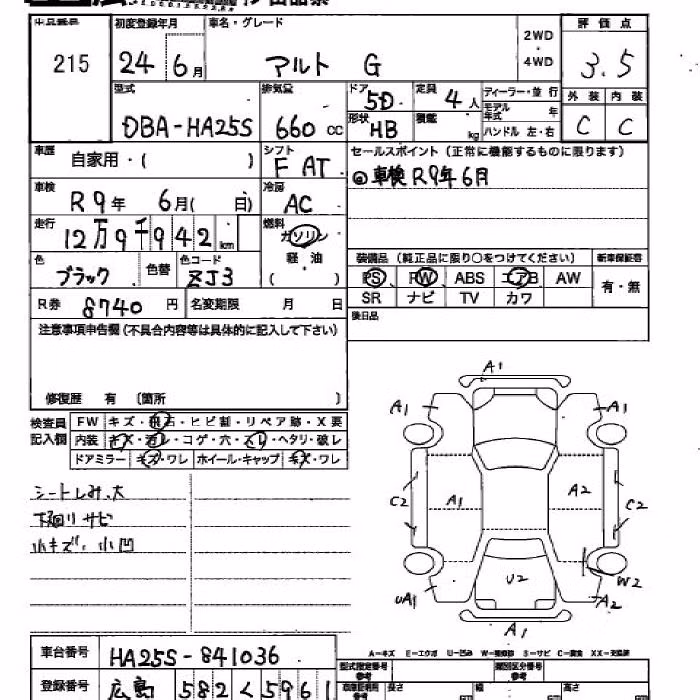 出品番号 初度登録年月 車名・グレード 2WD・4WD 評価点
215 24年 6月 アルト G 3.5
型式 排気量 ドア 定員 ディーラー・並行 外装 内装
DBA-HA25S 660 cc 5D 4人 モデル年式 年
形状 HB 積載 kg ハンドル 左・右 C C
車歴 自家用・( ) シフト F AT セールスポイント(正常に機能するものに限ります)
車検 R9年 6月( 日) 冷房 AC ◎車検R9年6月
走行 12万9千942km 燃料 ガソリン 軽油 ( )
装備品(純正品に限り○をつけてください) 新車保証書
色 ブラック 色替 色コード ZJ3 PS PW ABS エアB AW 有・無
R券 8740円 名変期限 月 日 SR ナビ TV カワ
後日品
注意事項申告欄(不具合内容等は具体的に記入して下さい)
修復歴 有 〔箇所 〕
検査員記入欄 FW キズ・飛石・ヒビ割・リペア跡・X要
内装 キズ・汚レ・コゲ・穴・スレ・ヘタリ・破レ
ドアミラー キズ・ワレ ホイール・キャップ キズ・ワレ
シートしみ、大
下廻りサビ
小キズ、小凹
A1
A1 A1
C2 A1 A2 C2
U2 W2
UA1 A2
A1
A-キズ E-エクボ U-凹み W-補修跡 S-サビ C-腐食 XX-交換済
車台番号 HA25S-841036
型式指定番号 参考 類別区分番号 参考
登録番号 広島 582く5961
長さ 幅 高さ